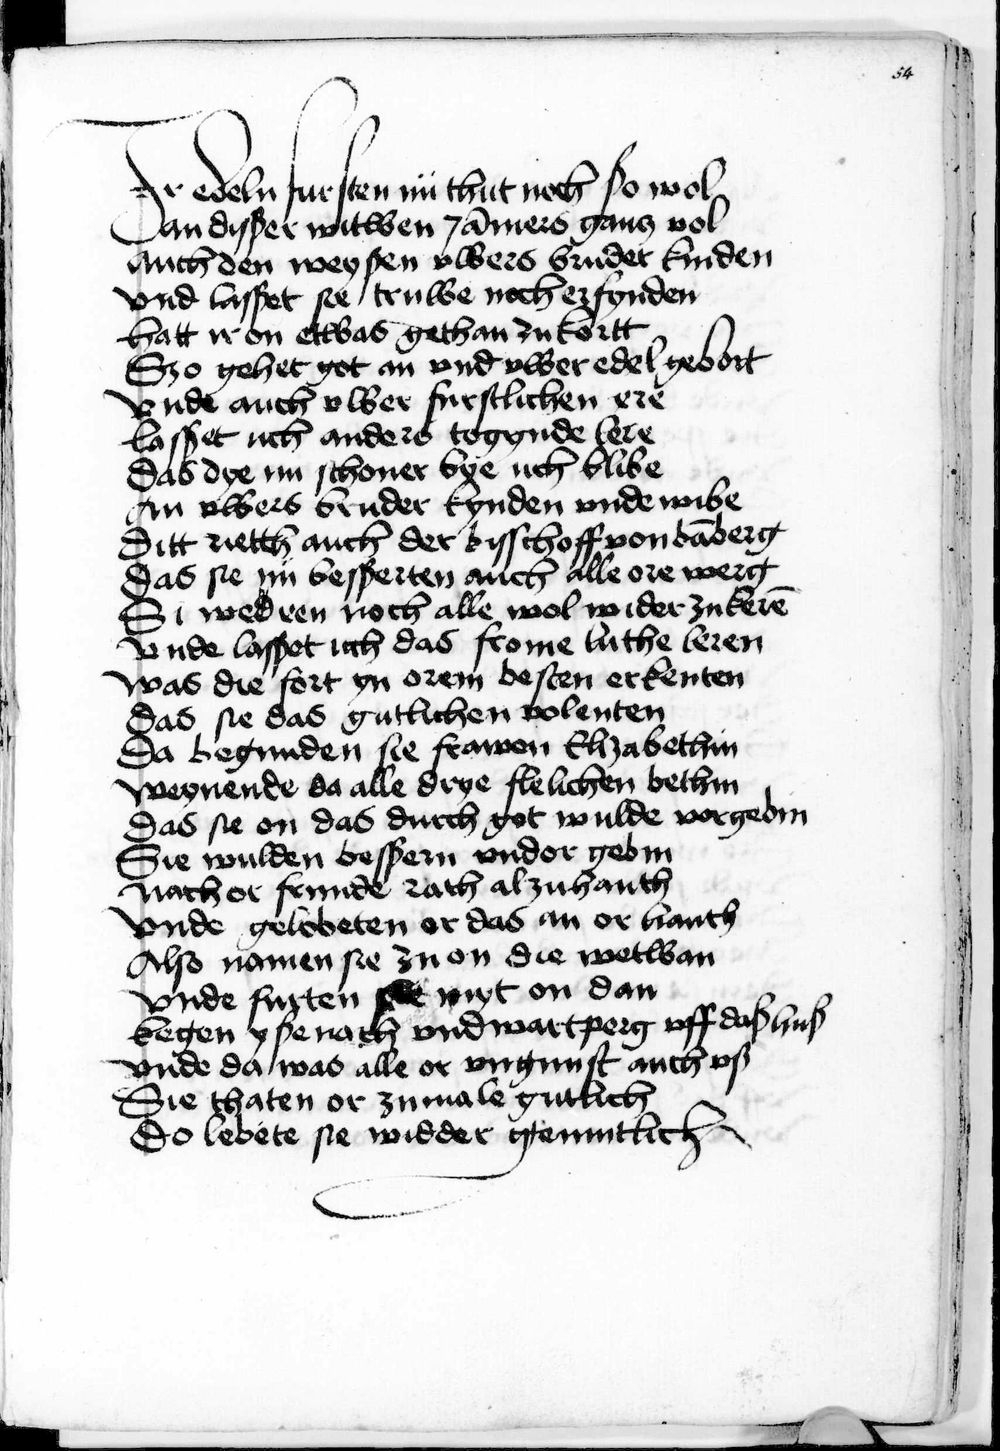 54
Ir edeln fursten nü thut noch so wol
An disser witwen jāmers gantz vol
Auch den weyssen vwers bruder kinden
vnd lasset sie truwe noch erfynden
hatt ir on etwas gethan zu kortt
Szo gehet got an vnd vwer edel gebort
vnde auch vwer furstlichen ere
lasset uch anders togynde lere
das dye nu schoner bye uch blibe
An vwers bruder kynden vnde wibe
Ditt rietth auch der bisschoff von bāberg
das sie nü besserten auch alle ore werg
Si wedren noch alle wol wider zu kerē
vnde lasset uch das frome lüthe leren
was die fort yn orem besten erkenten
das sie das gutlichen volenten
Da begunden sie frawen Elizabethin
weynende da alle drye flelichen bethin
das sie on das durch got wulde vorgebin
Sie wulden bessern vndor gebin
nach or frunde rath alzuhanth
vnde gelobeten or das an or hanth
Also namen sie zu on die wetwan
vnde furten sie myt on dan
kegen ysenach vnd wartperg vff das hus
vnde da was alle or vngunst auch vs
Sie thaten or zumale gutlich
Do lebete sie widder gemutlich